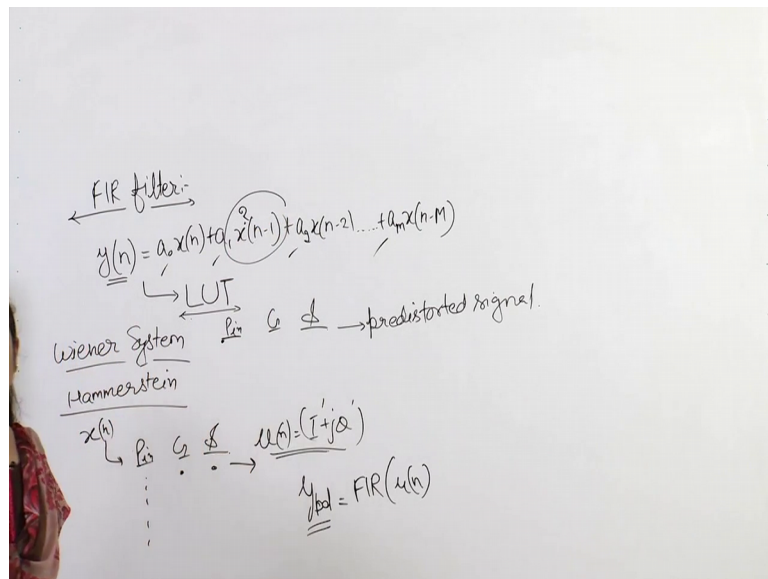 FIR filter:-
y(n) = a₀x(n)+a₁x²(n-1)+a₂x(n-2).....+aₘx(n-M)
LUT
Pin G $ → predistorted signal.
Wiener System
Hammerstein
x(n)
Pin G $ → u(n)=(I'+jQ')
ypd = FIR(u(n)